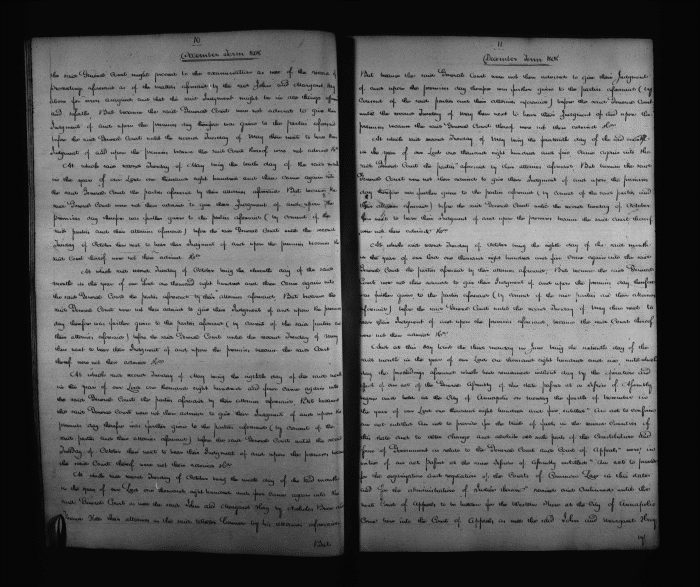 10
December Term 1806
the said General Court might proceed to the examination as now of the record &
proceedings aforesaid as of the matters aforesaid by the said John and Margaret Hoy
above for error assigned and that the said Judgment might be in all things affirmed
and so forth But because the said General Court were not advised to give their
Judgment of and upon the premises day therefore was given to the parties aforesaid
before the said General Court until the second Tuesday of May then next to hear their
Judgment of and upon the premises because the said Court thereof were not then advised &c
At which said second Tuesday of May being the tenth day of the said month
in the year of our Lord one thousand eight hundred and three Came again into
the said General Court the parties aforesaid by their attornies aforesaid But because
the said General Court were not then advised to give their Judgment of and upon the
premises day therefore was further given to the parties aforesaid (by Consent of the
said parties and their attornies aforesaid) before the said General Court until the second
Tuesday of October then next to hear their Judgment of and upon the premises because the
said Court thereof were not then advised &c
At which said second Tuesday of October being the eleventh day of the said
month in the year of our Lord one thousand eight hundred and three Came again into
the said General Court the parties aforesaid by their attornies aforesaid But because the
said General Court were not then advised to give their Judgment of and upon the premises
day therefore was further given to the parties aforesaid (by Consent of the said parties and
their attornies aforesaid) before the said General Court until the second Tuesday of May
then next to hear their Judgment of and upon the premises because the said Court
thereof were not then advised &c
At which said second Tuesday of May being the eighth day of the said month
in the year of our Lord one thousand eight hundred and four Came again into
the said General Court the parties aforesaid by their attornies aforesaid But because
the said General Court were not then advised to give their Judgment of and upon the
premises day therefore was further given to the parties aforesaid (by Consent of the
said parties and their attornies aforesaid) before the said General Court until the second
Tuesday of October then next to hear their Judgment of and upon the premises because
the said Court thereof were not then advised &c
At which said second Tuesday of October being the ninth day of the said month
in the year of our Lord one thousand eight hundred and four Came again into the
said General Court as well the said John and Margaret Hoy by Nicholas Brice and
Key their attornies as the said by his attornies aforesaid
But
11
December Term 1806
But because the said General Court were not then advised to give their Judgment
of and upon the premises day therefore was further given to the parties aforesaid (by
Consent of the said parties and their attornies aforesaid) before the said General Court
until the second Tuesday of May then next to hear their Judgment of and upon the
premises because the said Court thereof were not then advised &c
At which said second Tuesday of May being the fourteenth day of the said month
in the year of our Lord one thousand eight hundred and five Came again into the
said General Court the parties aforesaid by their attornies aforesaid But because the said
General Court were not then advised to give their Judgment of and upon the premises
day therefore was further given to the parties aforesaid (by Consent of the said parties and
their attornies aforesaid) before the said General Court until the second Tuesday of October
then next to hear their Judgment of and upon the premises because the said Court thereof
were not then advised &c
At which said second Tuesday of October being the eighth day of the said month
in the year of our Lord one thousand eight hundred and five Came again into the said
General Court the parties aforesaid by their attornies aforesaid, But because the said General
Court were not then advised to give their Judgment of and upon the premises day therefore
was further given to the parties aforesaid (by Consent of the said parties and their attornies
aforesaid) before the said General Court until the second Tuesday of May then next to
hear their Judgment of and upon the premises aforesaid, because the said Court thereof
were not then advised &c
And at this day to wit the third Monday in June being the sixteenth day of the
said month in the year of our Lord one thousand eight hundred and six, until which
day the proceedings aforesaid which had remained continued by the operation and
effect of an act of the General Assembly of this state passed at a Session of Assembly
begun and held at the City of Annapolis on monday the fourth of November in
the year of our Lord one thousand eight hundred and five entitled "An act to confirm
an act entitled An act to provide for the trial of facts in the several Counties of
this state and to alter change and abolish all such parts of the Constitution and
form of Government as relate to the General Court and Court of Appeals" were, in
virtue of an act passed at the same Session of Assembly entitled "An act to provide
for the organization and regulation of the Courts of Common Law in this state
and for the administration of Justice therein" removed and Continued until the
said Court of Appeals to be holden for the Western Shore at the City of Annapolis
Come here into the Court of Appeals as well the said John and Margaret Hoy
by